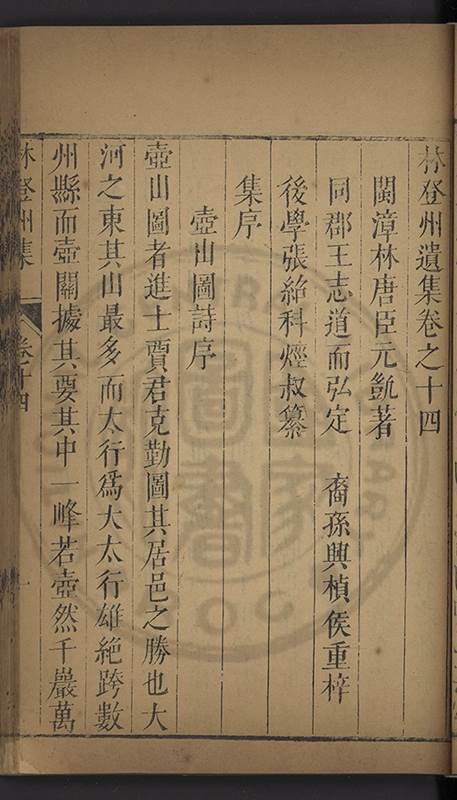 林登州遺集卷之十四
閩漳林唐臣元凱著
同郡王志道而弘定 裔孫興楨侯重梓
後學張紹科烴叔纂
集序
壺山圖詩序
壺山圖者進士賈君克勤圖其居邑之勝也大
河之東其山最多而太行爲大太行雄絶跨數
州縣而壺關據其要其中一峰若壺然千巖萬
林登州集 卷十四 一